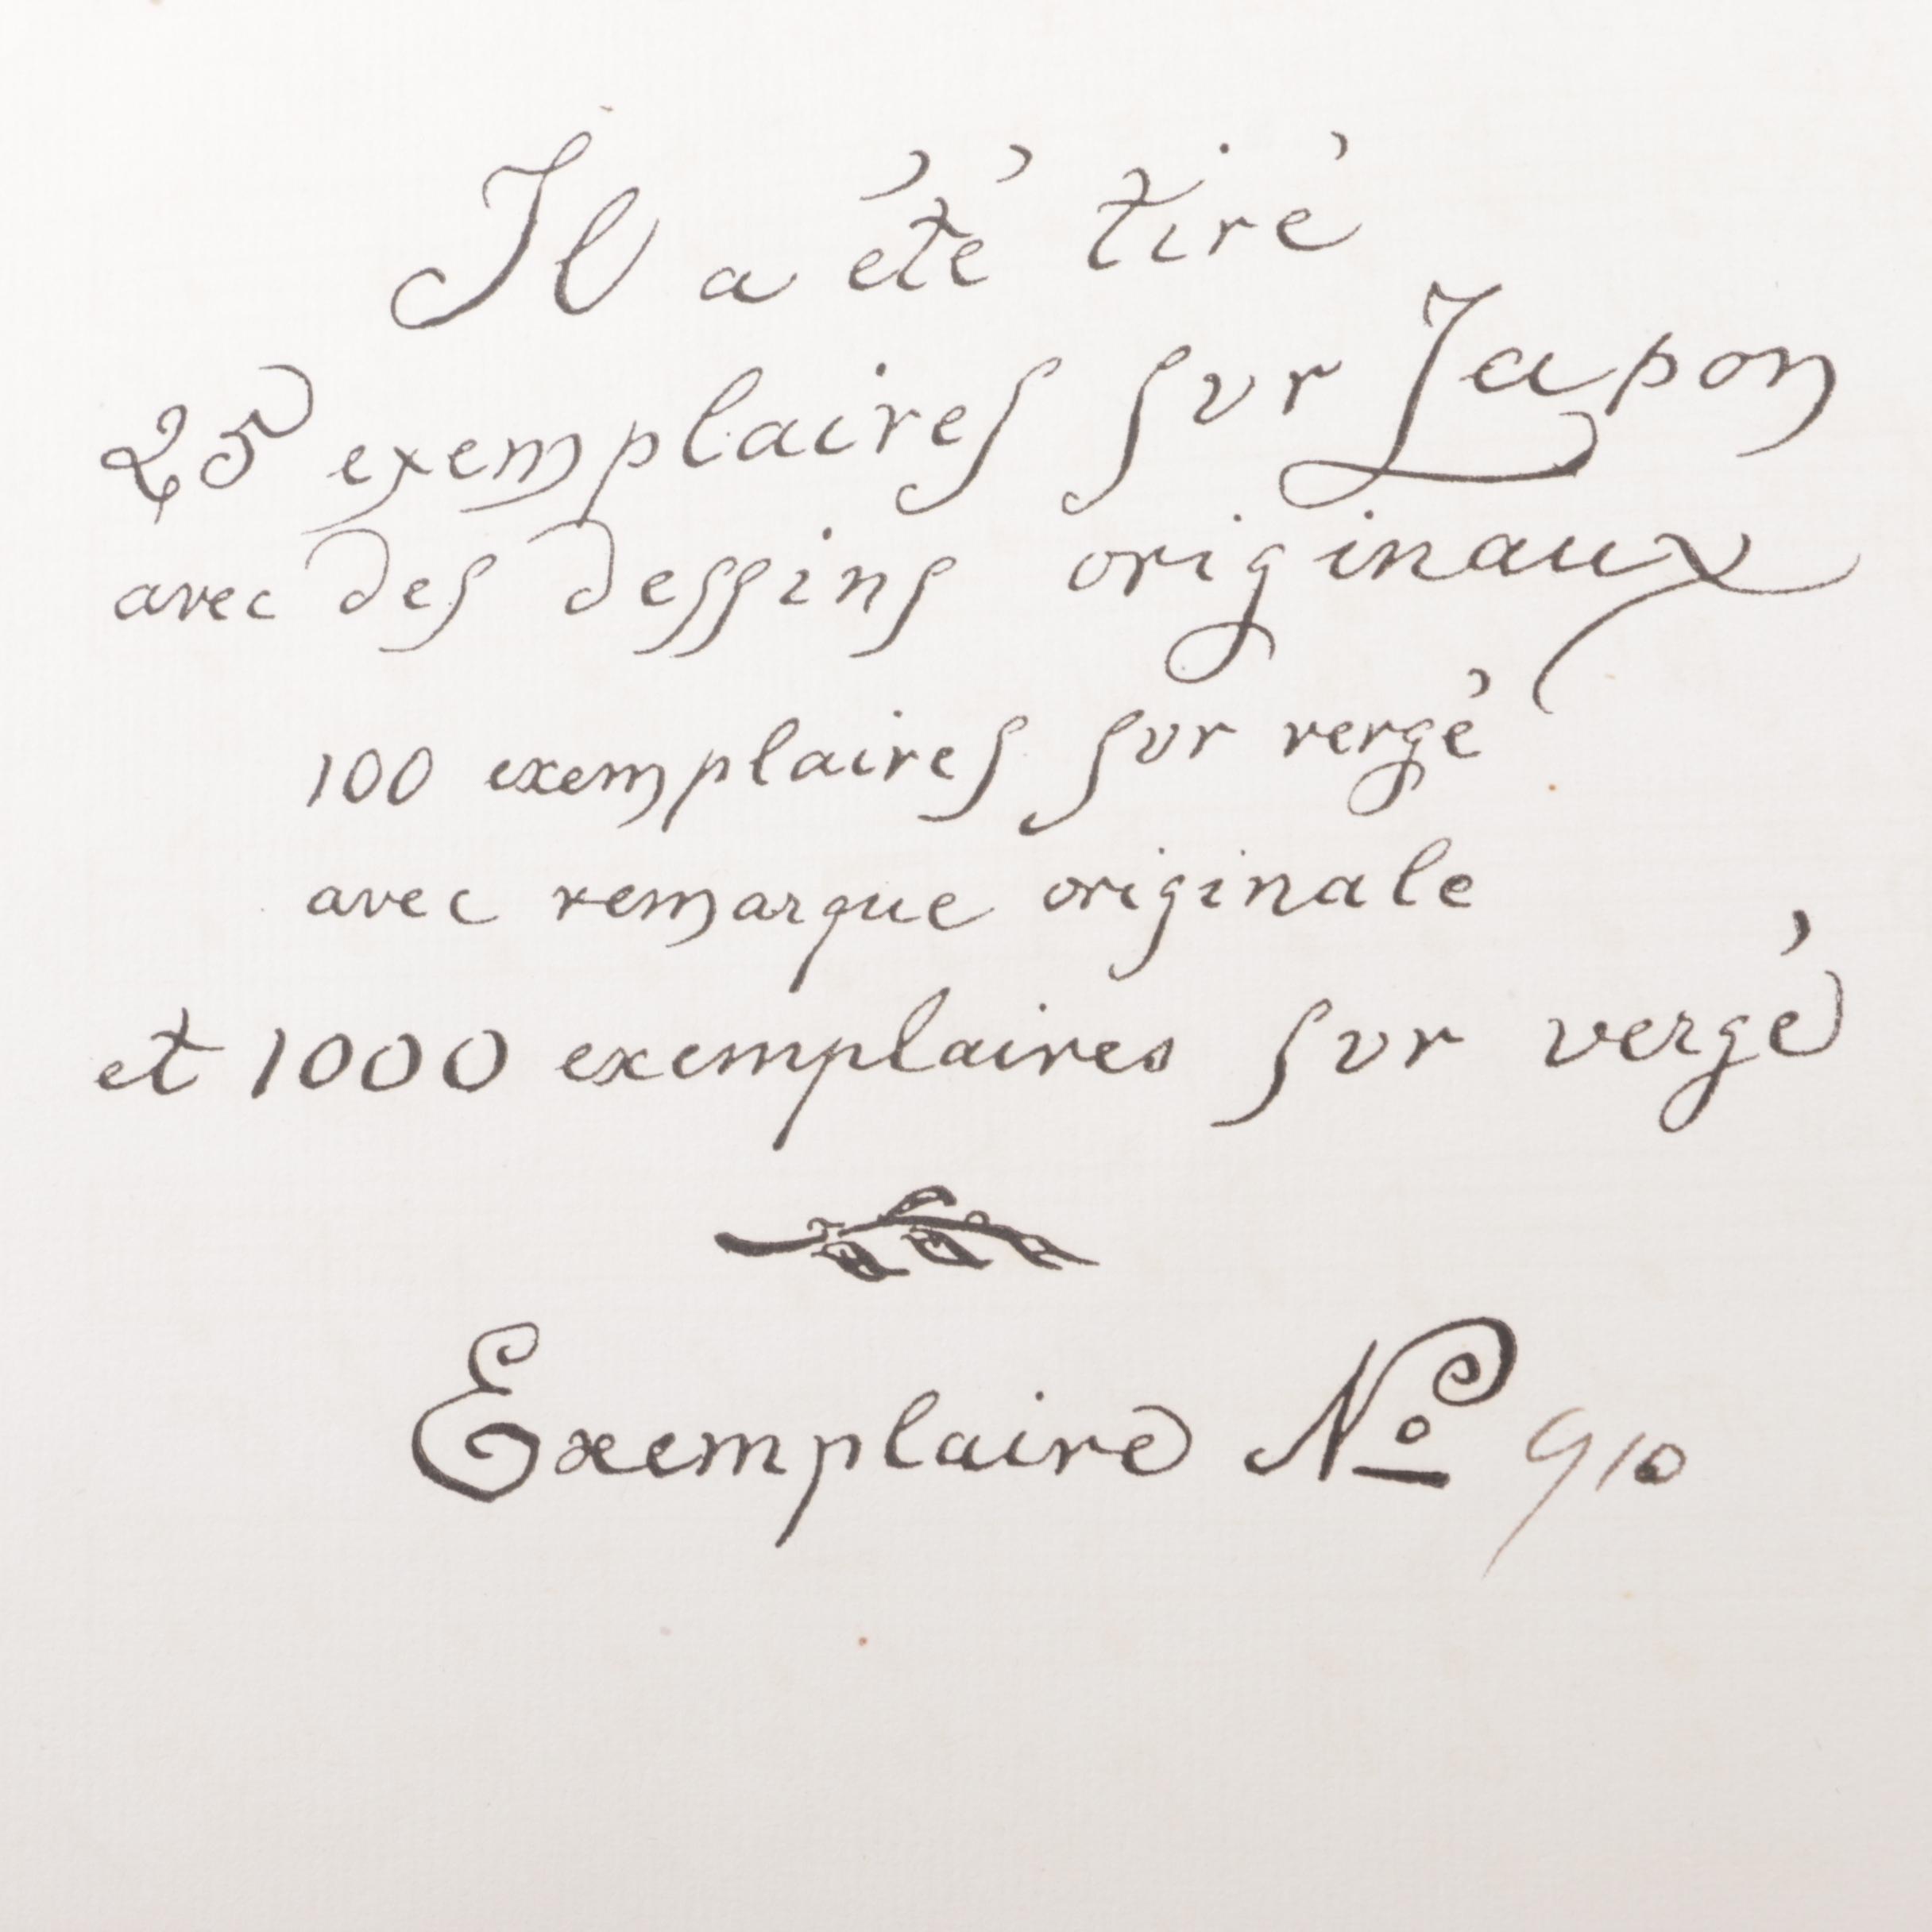 Il a été tiré
25 exemplaires sur Japon
avec des dessins originaux
100 exemplaires sur vergé
avec remarque originale
et 1000 exemplaires sur vergé
Exemplaire Nº 910